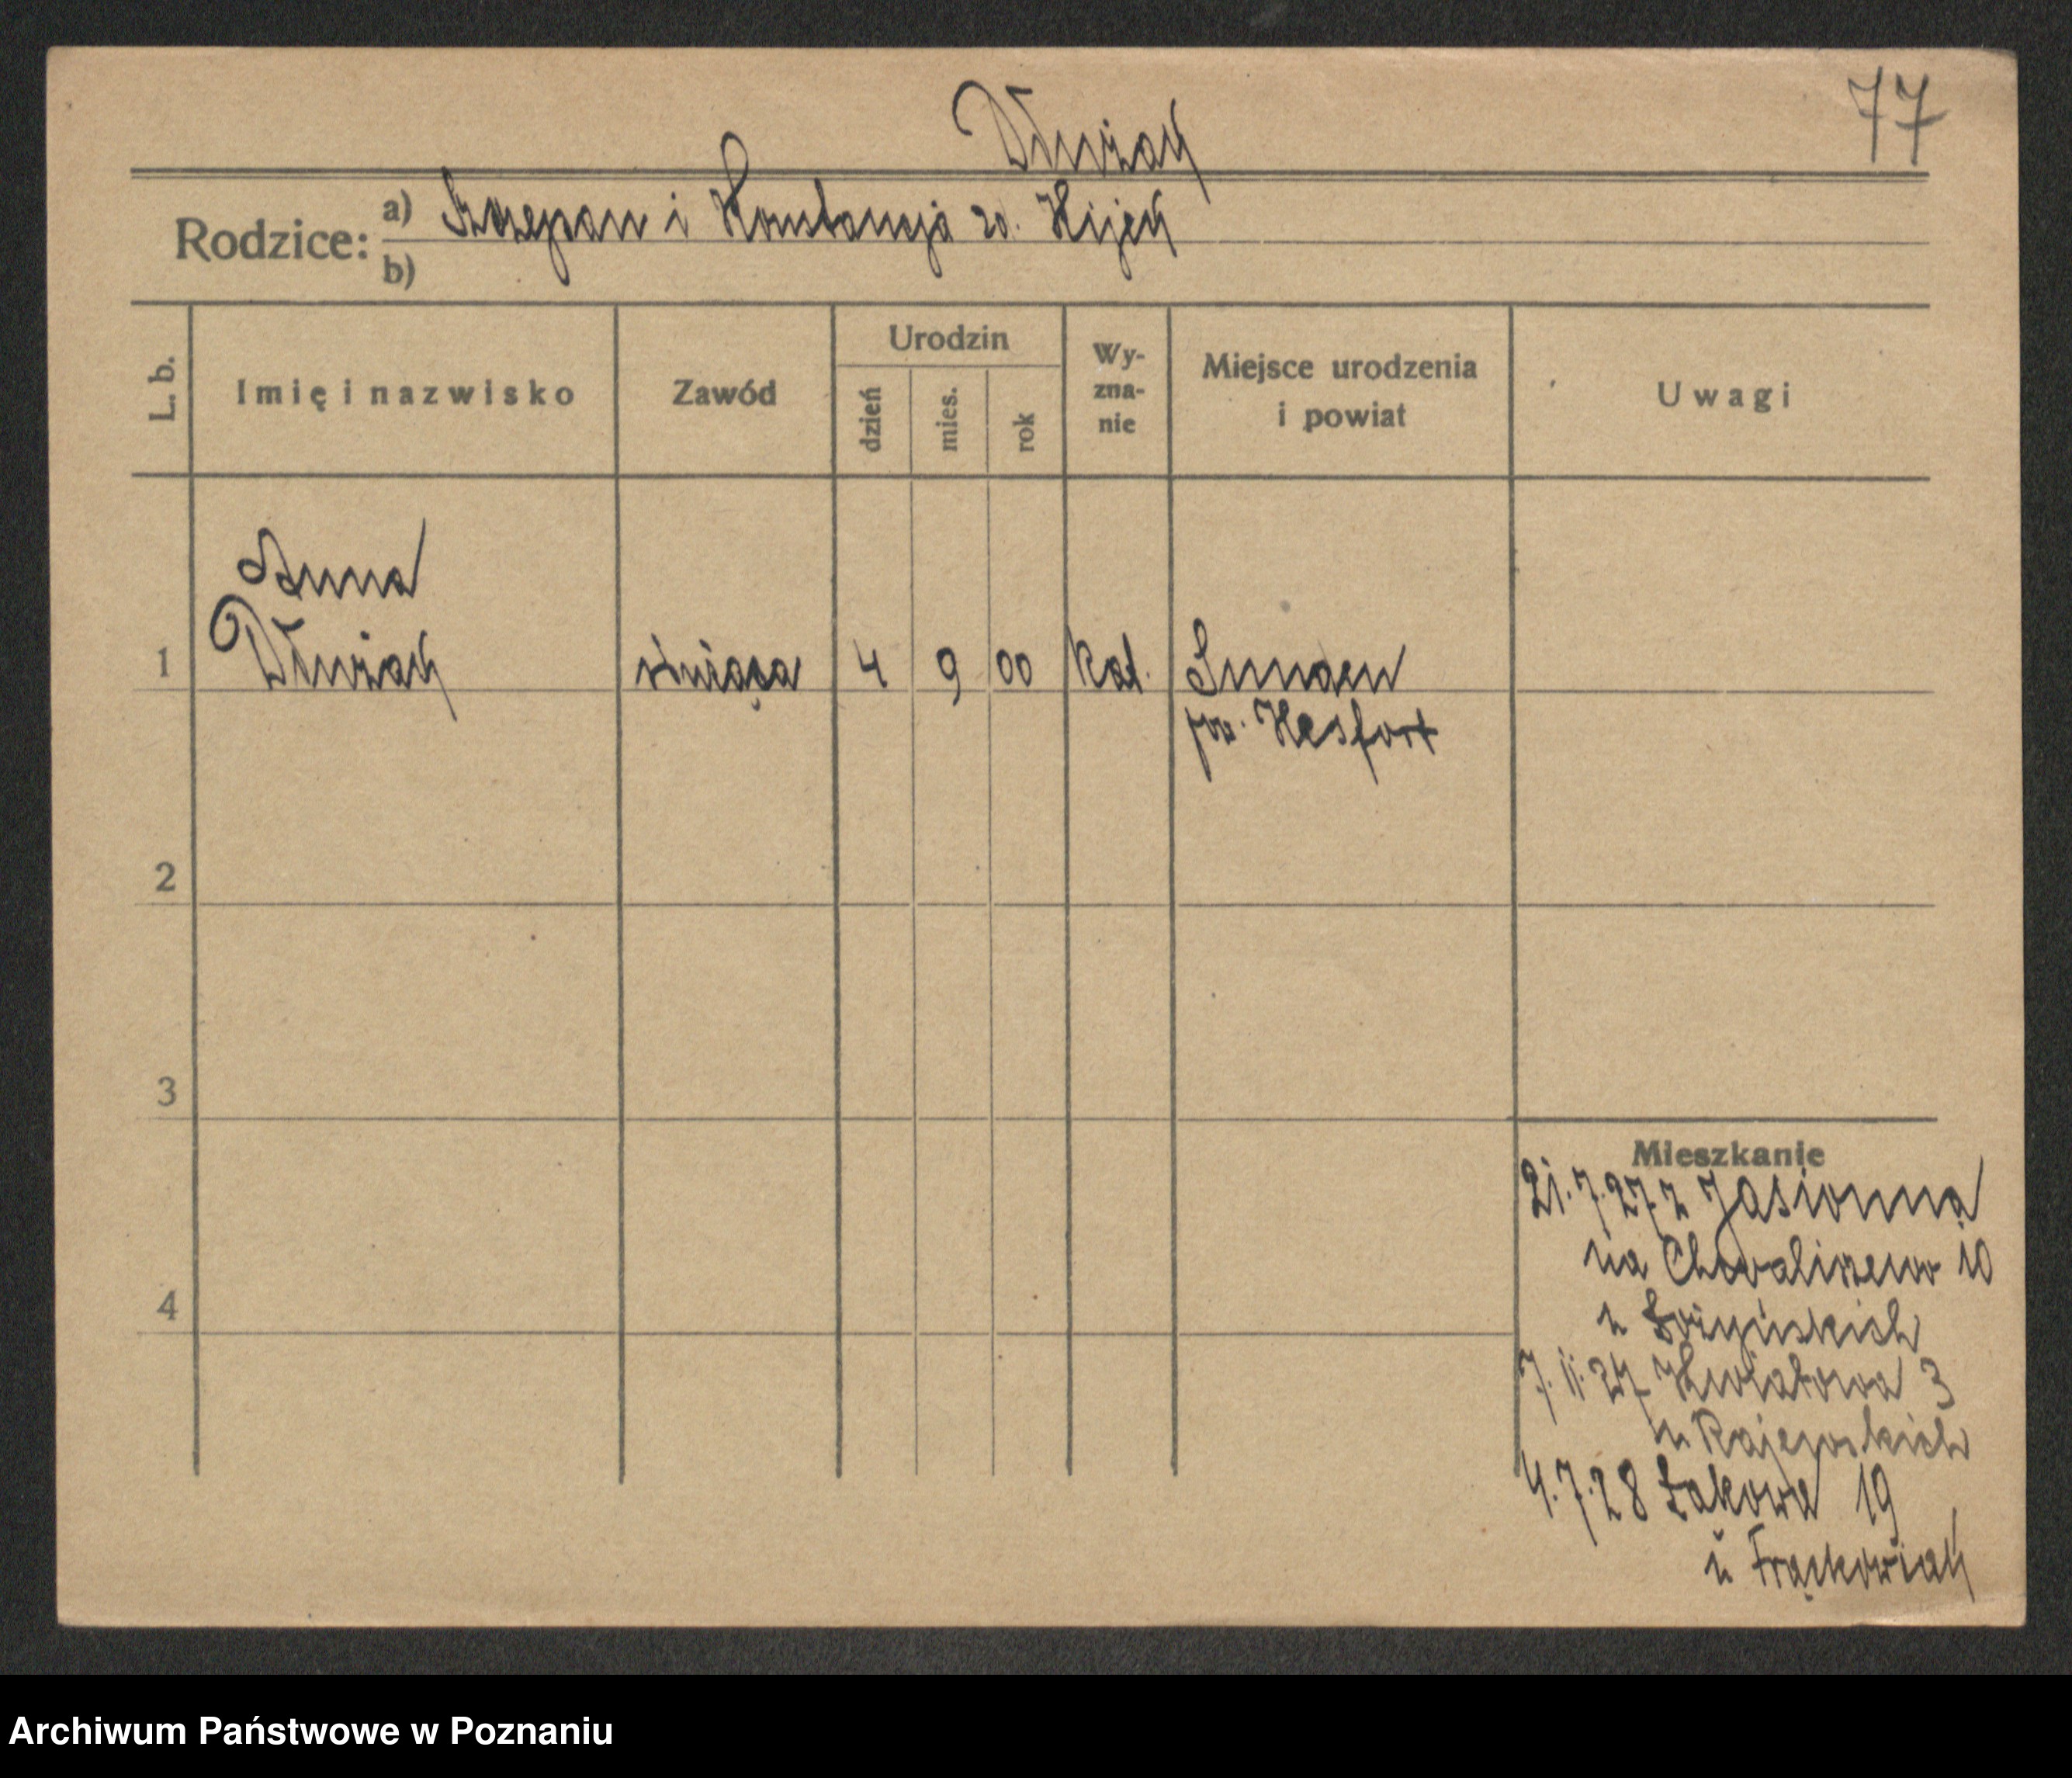 77
Dłużak
Rodzice: a) Szczepan i Konstancja z d. Kijek
b)
L. b.
Imię i nazwisko
Zawód
Urodzin
dzień
mies.
rok
Wy-
zna-
nie
Miejsce urodzenia
i powiat
Uwagi
Anna
1 Dłużak służąca 4 9 00 kat.
pow.
2
3
4
Mieszkanie
21.7.27 z Jasionna
na Chwaliszewo 10
u
7.11.27 Kwiatowa 3
u Rajewskich
4.7.28 Łąkowa 19
u Frąckowiak
Archiwum Państwowe w Poznaniu